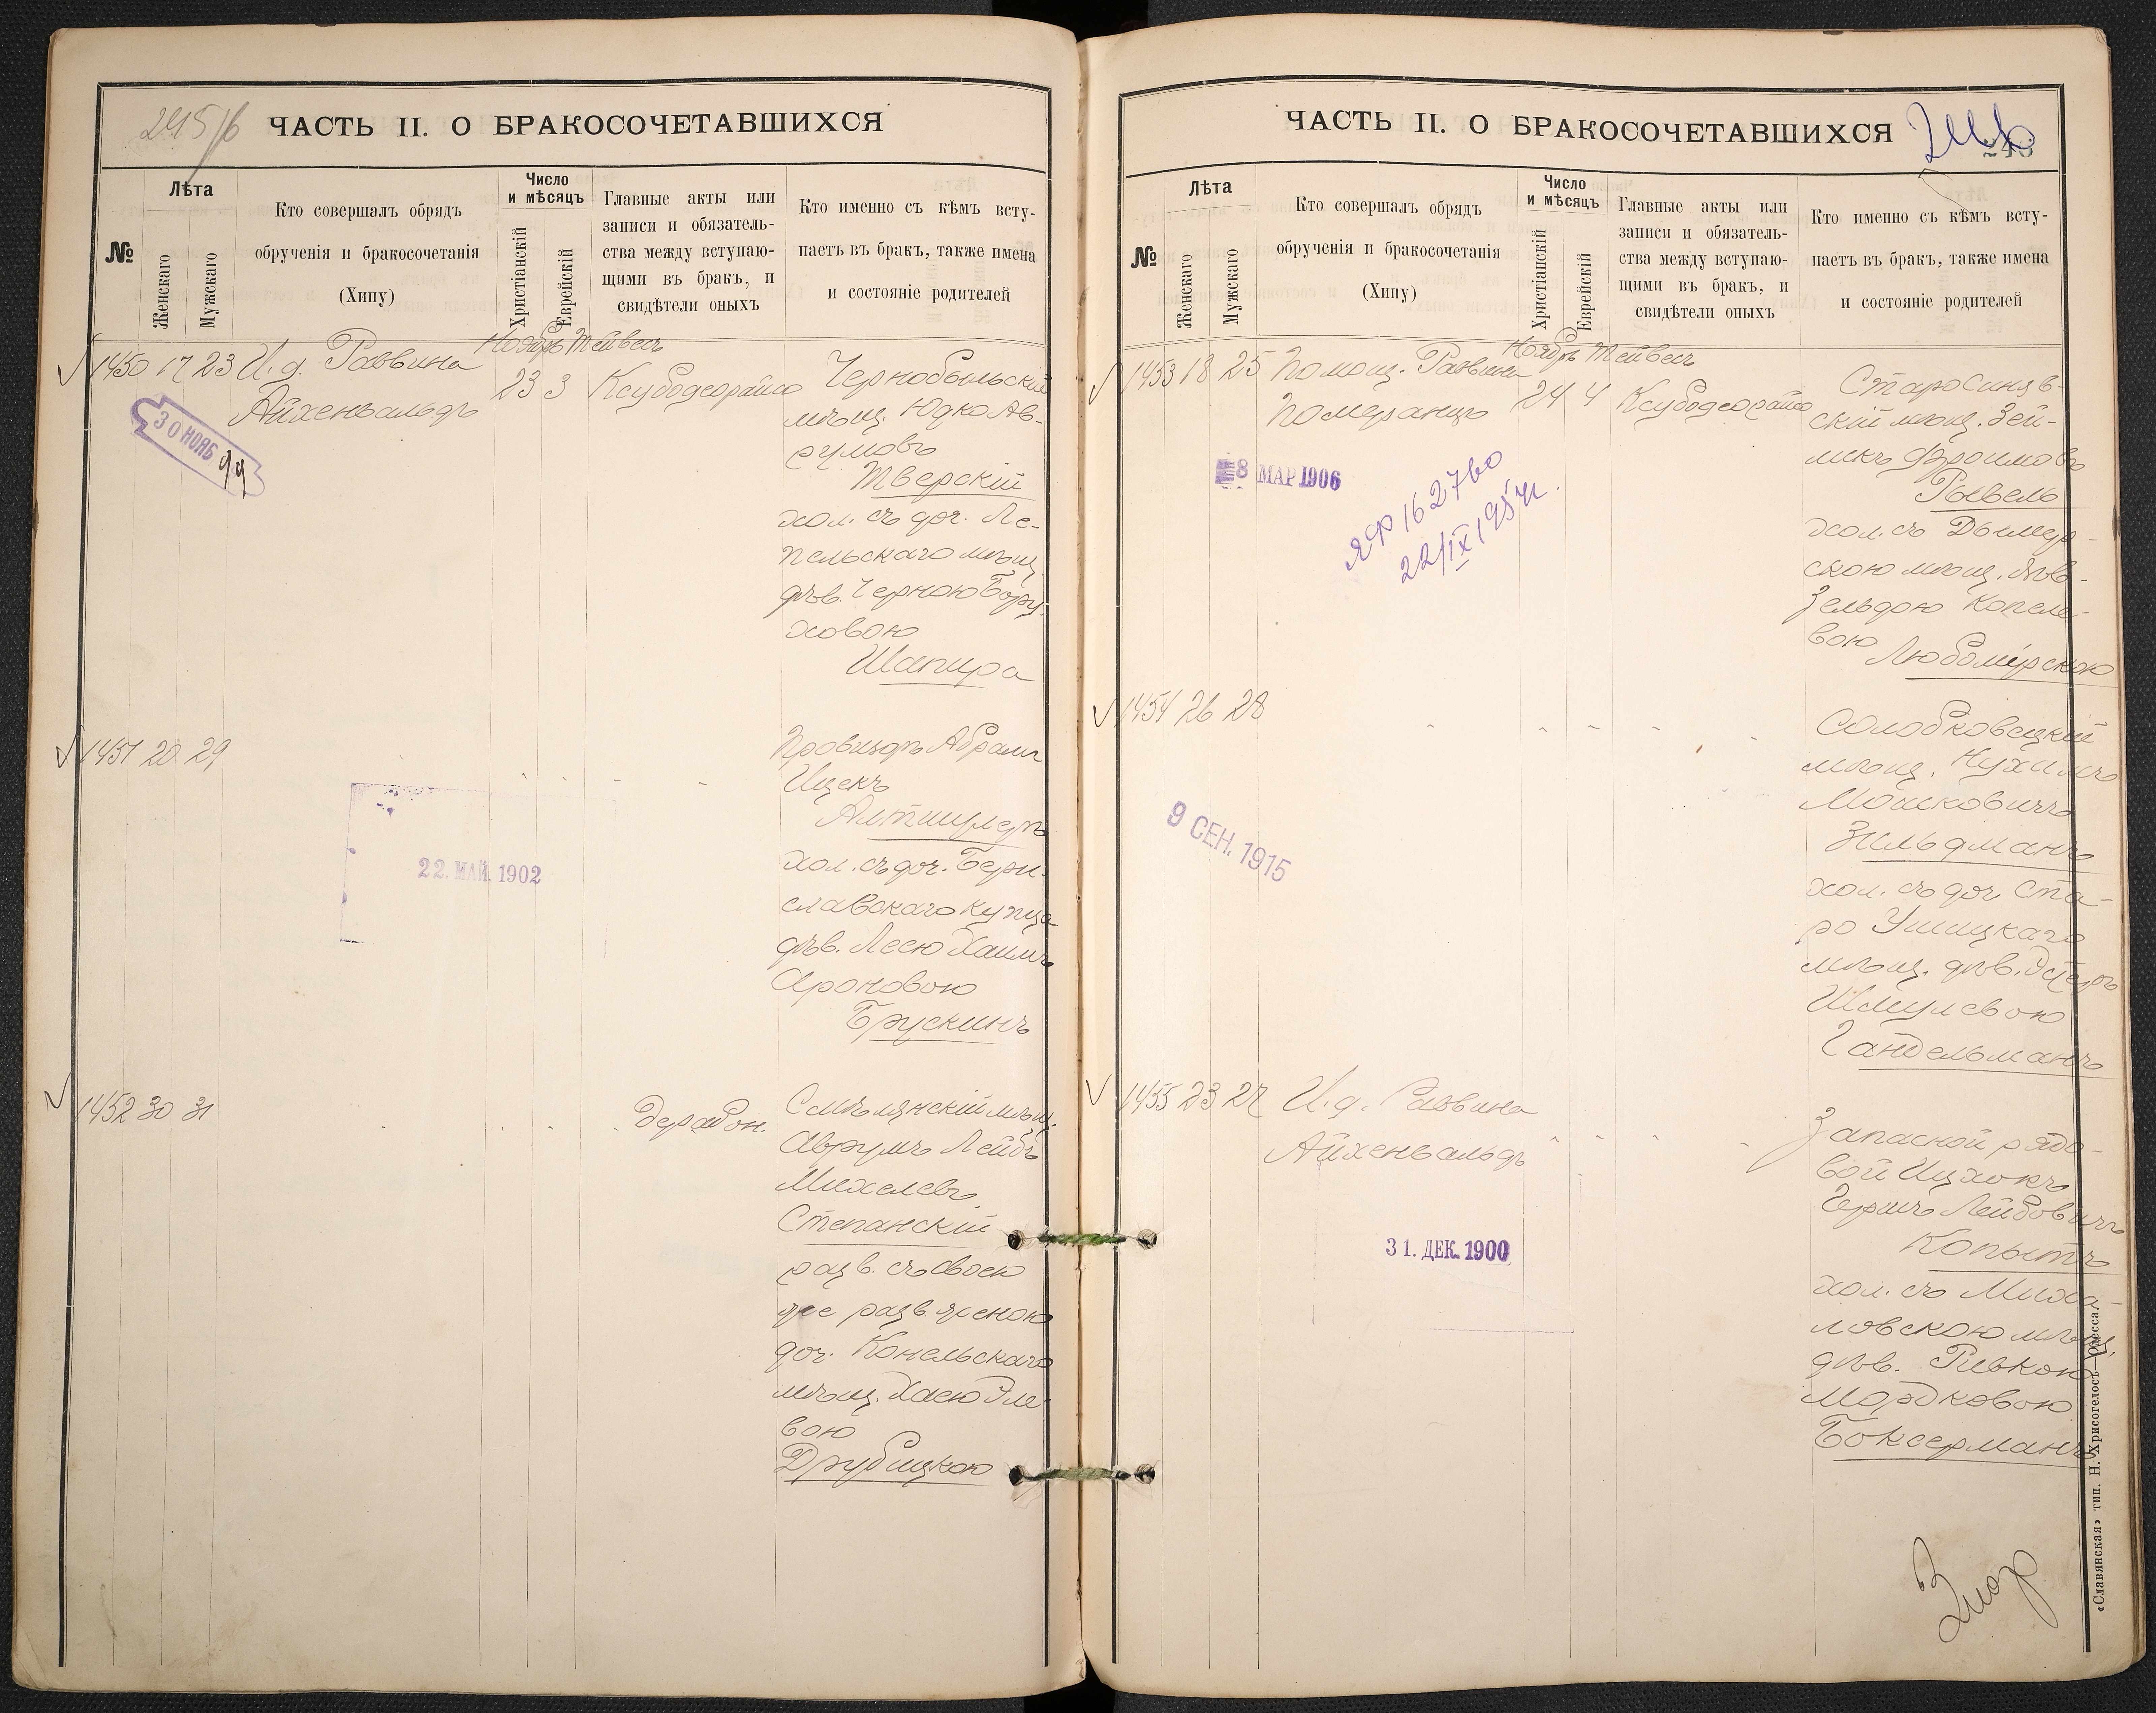 ЧАСТЬ II. О БРАКОСОЧЕТАВШИХСЯ
№
Лѣта
Женскаго
Мужскаго
Кто совершалъ обрядъ
обрученія и бракосочетанія
(Хипу)
Число
и мѣсяцъ
Христіанскій
Еврейскій
Главные акты или
записи и обязатель-
ства между вступаю-
щими въ бракъ, и
свидѣтели оныхъ
Кто именно съ кѣмъ всту-
паетъ въ бракъ, также имена
и состояніе родителей
Ноябрь Тейвесъ
1450 17 23 И.д. Раввина 23 3 Ксубодеорайсо
Айхенвальдъ
30 НОЯБ 99
Чернобыльскій
мѣщ. Юдко Ав-
румовъ
Тверскій
хол. съ доч. Ле-
пельскаго мѣщ.
дѣв. Черною Бору-
ховою
Шапира
1451 20 29
22. МАЙ. 1902
Провизоръ Абрамъ
Ицекъ
Алтшулеръ
хол. съ доч. Бери-
славскаго купца
дѣв. Лесю Хаимъ
Ароновою
Брускинъ
1452 30 31
Дерабон.
Смѣлянскій мѣщ.
Аврумъ Лейбъ
Михелевъ
Степанскій
разв. съ своею
же разв. женою
доч. Конельскаго
мѣщ. Хасю Эле-
вою
Друбицкою
ЧАСТЬ II. О БРАКОСОЧЕТАВШИХСЯ
246
№
Лѣта
Женскаго
Мужскаго
Кто совершалъ обрядъ
обрученія и бракосочетанія
(Хипу)
Число
и мѣсяцъ
Христіанскій
Еврейскій
Главные акты или
записи и обязатель-
ства между вступаю-
щими въ бракъ, и
свидѣтели оныхъ
Кто именно съ кѣмъ всту-
паетъ въ бракъ, также имена
и состояніе родителей
Ноябрь Тейвесъ
1453 18 25 Помощ. Раввина 24 4 Ксубодеорайсо
Померанцъ
8 МАР 1906
22/IX 195
Старосиняв-
скій мѣщ. Зей-
ликъ Фроимовъ
хол. съ Дымер-
скою мѣщ. дѣв.
Зельдою Копеле-
вою
Любомирскою
1454 26 28
9 СЕН. 1915
Солобковецкій
мѣщ. Нухимъ
Мошковичъ
Зильдманъ
хол. съ доч. Ста-
ро Ушицкаго
мѣщ. дѣв. Эстеръ
Шмулевою
Гандельманъ
1455 23 27 И.д. Раввина
Айхенвальдъ
31. ДЕК. 1900
Запасной рядо-
вой Ицхокъ
Гершъ Лейбовичъ
Копытъ
хол. съ Миха-
ловскою мѣщ.
дѣв. Ривкою
Мордковою
Боксерманъ
«Славянская» тип. Н. Хрисогелосъ—Одесса.